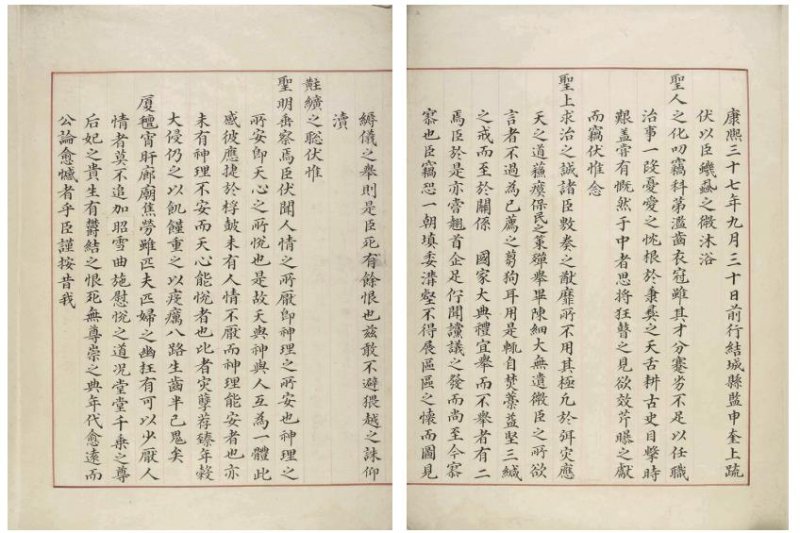 康熙三十七年九月三十日前行結城縣監申奎上疏
伏以臣蟣蝨之微沐浴
聖人之化叨竊科第濫齒衣冠雖其才分蹇劣不足以任職
治事一段憂愛之忱根於秉彝之天舌耕古史目擊時
艱盖嘗有慨然于中者思將狂瞽之見欲效芹曝之獻
而竊伏惟念
聖上求治之誠諸臣敷奏之猷靡所不用其極允於弭灾應
天之道蘓瘼保民之策殫舉畢陳細大無遺微臣之所欲
言者不過為已薦之蒭狗耳用是輒自焚藁益堅三緘
之戒而至於關係 國家大典禮宜舉而不舉者有二
焉臣於是亦嘗翹首企足佇聞讜議之發而尚至今寥
寥也臣竊恐一朝塡委溝壑不得展區區之懷而圖見
縟儀之舉則是臣死有餘恨也玆敢不避猥越之誅仰
瀆
黈纊之聡伏惟
聖明垂察焉臣伏聞人情之所厭卽神理之所安也神理之
所安卽天心之所悅也是故天與神與人互為一體此
感彼應捷於桴皷未有人情不厭而神理能安者也亦
未有神理不安而天心能悅者也比者灾孼荐臻年糓
大侵仍之以飢饉重之以疫癘八路生齒半已鬼矣
厦氊宵旰廊廟焦勞雖匹夫匹婦之幽枉有可以少厭人
情者莫不追加昭雪曲施慰悅之道况堂堂千乘之尊
后妃之貴生有欝結之恨死無尊崇之典年代愈遠而
公論愈憾者乎臣謹按昔我